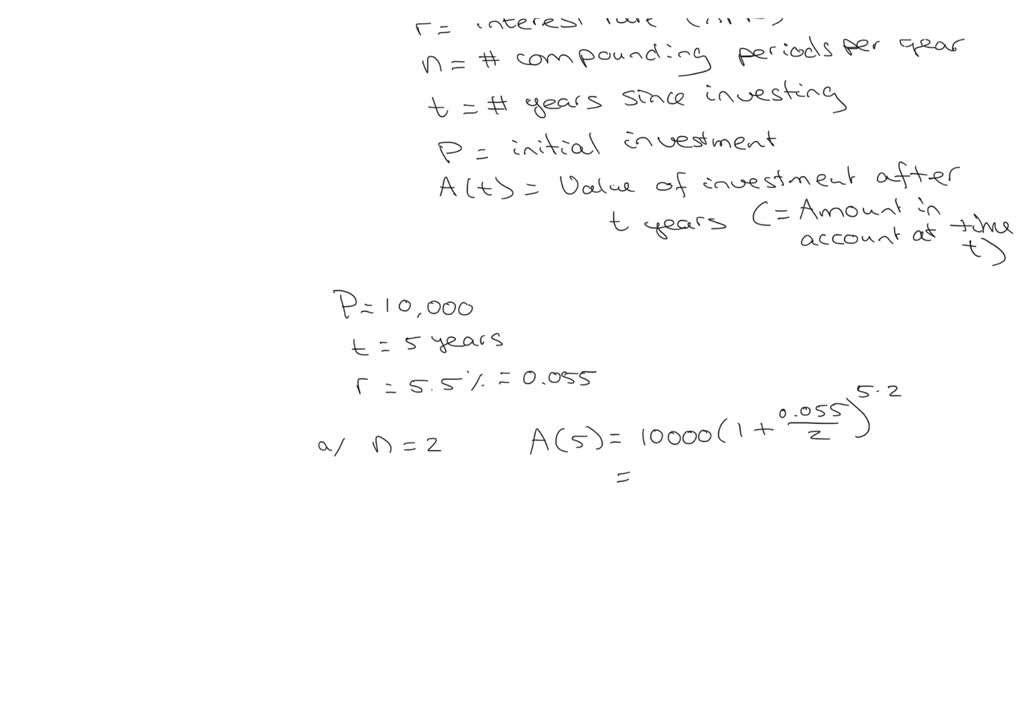 r =
n = # compounding periods per year
t = # years since investing
P = initial investment
A(t) = Value of investment after
t years (= Amount in
account at time
t)
P = 10,000
t = 5 years
r = 5.5% = 0.055
a/ n = 2 A(5) = 10000(1 + 0.055/2)^5·2
=